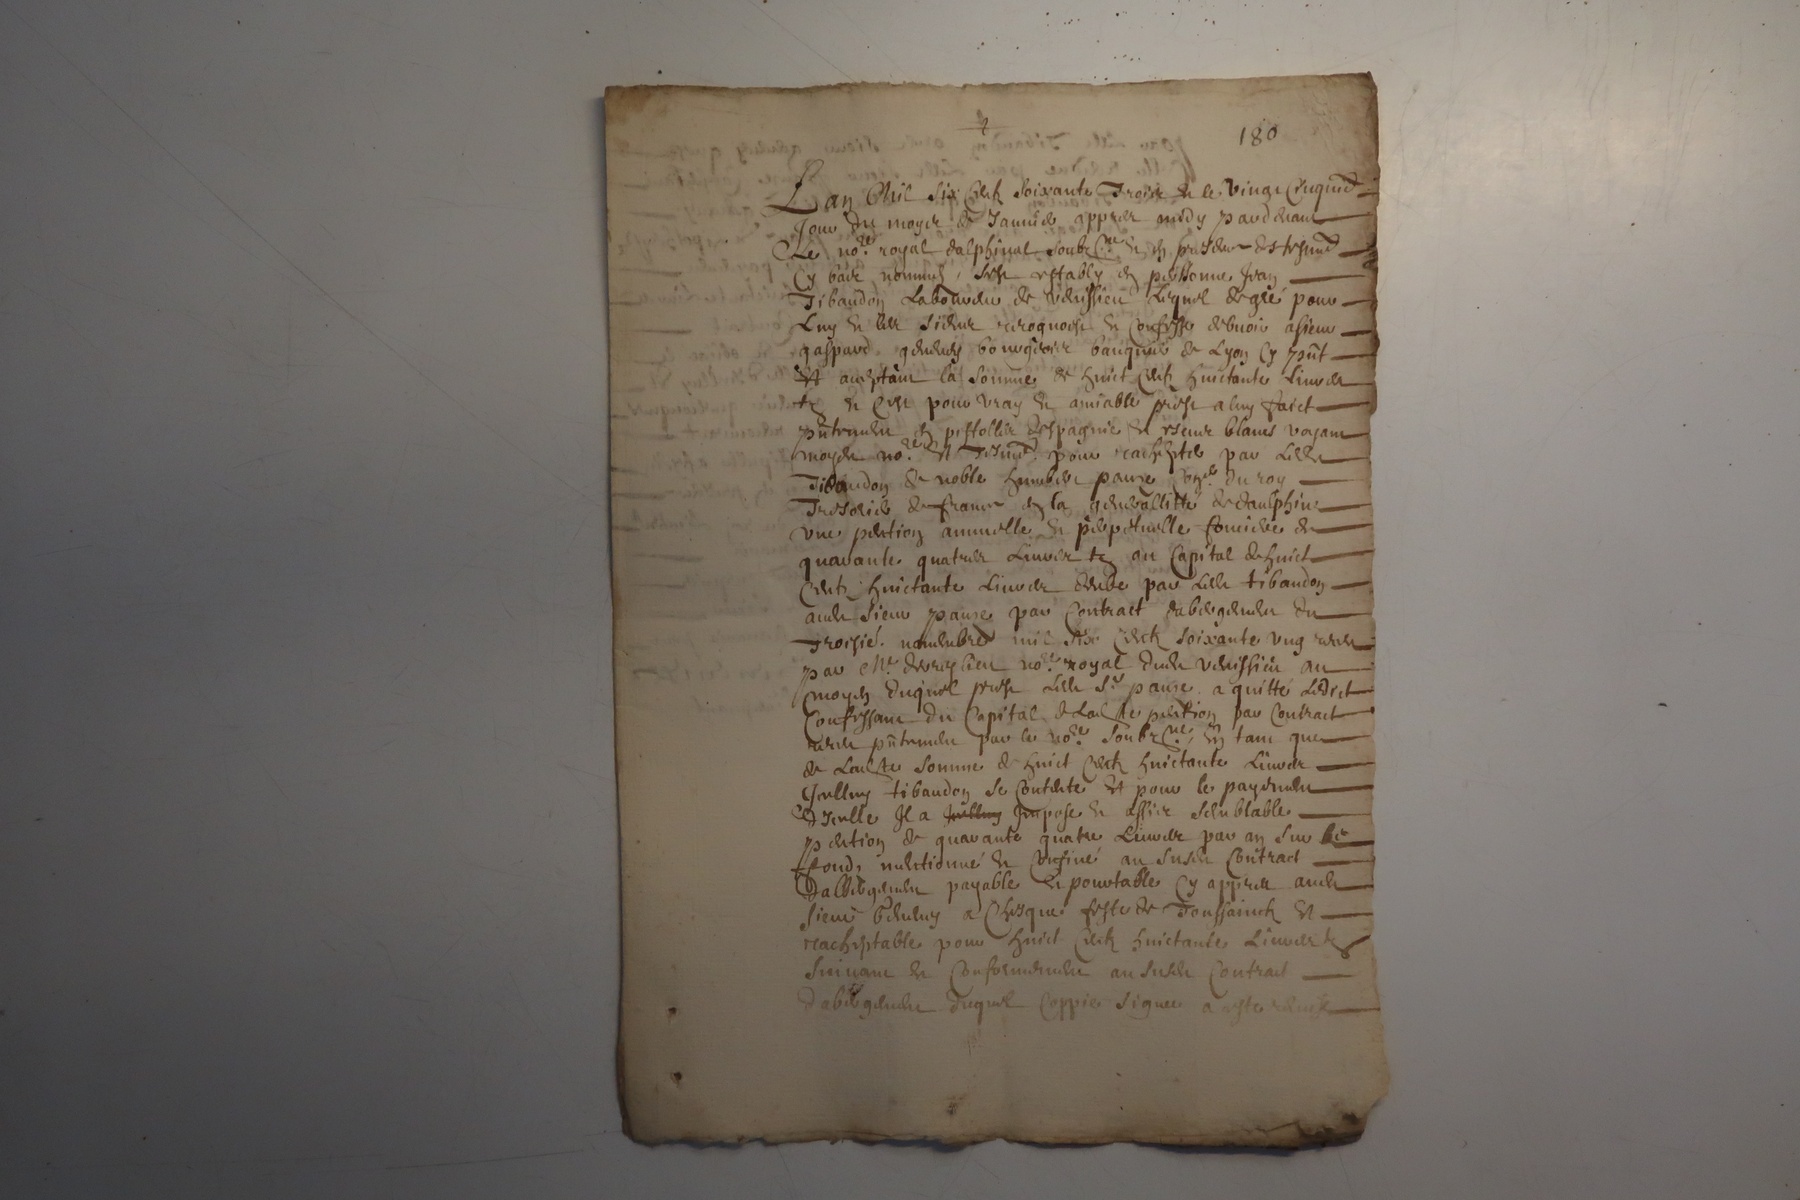 180
Lan Mil Six Centz Soixante Trois et le Vingt Cinquie
Jour du moys de Janvier appres midy pardevant
Le no.re royal dalphinal soubz.ne et en presence des tesmoins
Cy bas nommes, sest estably en personne Jean
Tibaudon Laboureur de Lequel de gré pour
Luy et les siens recognoist et Confesse debvoir a sieur
gaspard bourgeois banquier de Lyon Cy pnt
et acceptant la somme de huict Centz huictante Livres
tz et Cest pour vray et amiable prest a luy faict
pntement en pistolles despagne et escus blancs voyant
moyd. no.re et Tesmoins pour rachepter par Ledit
Tibaudon de noble humbert Con.er du roy
Tresorier de france en la generallitté de daulphine
Une pention annuelle et perpetuelle fonciere de
quarante quatres Livres tz au Capital de huict
Centz huictante Livres deube par Ledit tibaudon
audit sieur par Contract dabergement du
Troisie. novembre mil Six Centz soixante ung receu
par Me no.re royal dudit au
moyen duquel prest Ledit Sr a quitté Ledict
Confessant du Capital de Ladte pention par Contract
receu pntement par le no.re soubz.ne, En tant que
de Ladte somme de huict Centz huictante Livres
Icelluy tibaudon se Contente et pour le payement
dIcelle Il a Impose et assis semblable
pention de quarante quatre Livres par an sur les
fonds mentionné et Confiné au susdit Contract
dalbergement payable et pourtable Cy appres audit
sieur a Chesque feste de Toussainctz et
racheptable pour huict Centz huictante Livres tz
suivant et Conformement au susdit Contract
dabergement duquel Coppie signee a esté remise